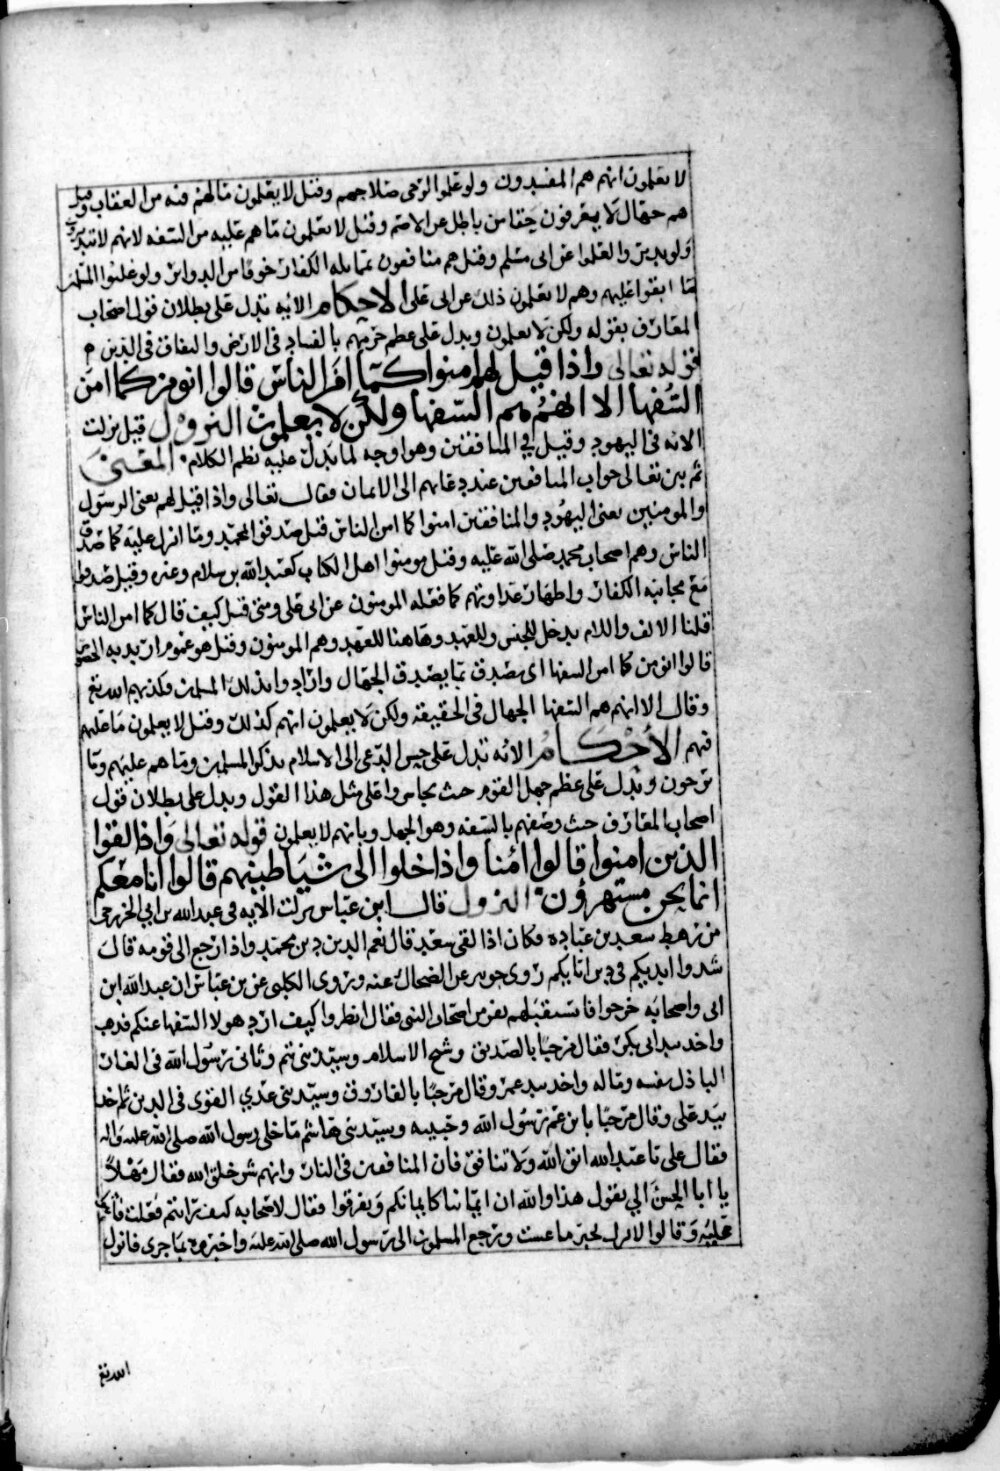 لا يعلمون انهم هم المفسدون ولو علموا لرجى صلاحهم وقيل لا يعلمون ما لهم فيه من العقاب وقيل
هم جهال لا يعرفون حقا من باطل عن الاصم وقيل لا يعلمون ما هم عليه من السفه لانهم لا
والعلموا عن ابى مسلم وقيل هم منافقون تمايله الكفار خوفا من الدواير ولو غلبوا المسلمين
لما ابقوا عليهم وهم لا يعلمون ذلك عن ابى على الاحكام الايه تدل على بطلان قول اصحاب
المعارف بقوله ولكن لا يعلمون ويدل على عظم جرمهم بالفساد فى الارض والنفاق فى الدين
قوله تعالى واذا قيل لهم امنوا كما امن الناس قالوا انومن كما امن
السفها الا انهم هم السفها ولكن لا يعلمون النزول قيل نزلت
الايه فى اليهود وقيل فى المنافقين وهو اوجه لما يدل عليه نظم الكلام المعنى
ثم بين تعالى جواب المنافقين عند دعايهم الى الايمان فقال تعالى واذا قيل لهم يعنى الرسول
والمومنين يعنى اليهود والمنافقين امنوا كما امن الناس قيل صدقوا بمحمد وما انزل عليه كما صدق
الناس وهم اصحاب محمد صلى الله عليه وقيل مومنوا اهل الكتاب كعبد الله بن سلام وغيره وقيل صدقوا
مع مجانبه الكفار واظهار عداوتهم كما فعله المومنون عن ابى على ومتى قيل كيف قال كما امن الناس
قلنا الالف واللام يدخل للجنس وللعهد وهاهنا للعهد وهم المومنون وقيل هو عموم اريد به الخصوص
قالوا انومن كما امن السفها اى نصدق بما يصدق الجهال وارادوا بذلك المسلمين فكذبهم الله تع
وقال الا انهم هم السفها الجهال فى الحقيقه ولكن لا يعلمون انهم كذلك وقيل لا يعلمون ما عليهم
فيهم الاحكام الايه تدل على حين الدعى الى الاسلام بذكر المسلمين وما هم عليهم وما
يرجون ويدل على عظم جهل القوم حيث تجاسروا على مثل هذا القول ويدل على بطلان قول
اصحاب المعارف حيث وصفهم بالسفه وهو الجهل وبانهم لا يعلمون قوله تعالى واذا لقوا
الذين امنوا قالوا امنا واذا خلوا الى شياطينهم قالوا انا معكم
انما نحن مستهزؤن النزول قال ابن عباس نزلت الايه فى عبد الله بن ابي الخزرجى
من رهط سعد بن عباده وكان اذا لقى سعد قال نعم الدين دين محمد واذا رجع الى قومه قال
شدوا ايديكم فى دين ابايكم روى جويبر عن الضحاك عنه وروى الكلبى عن بن عباس ان عبد الله ابن
ابى واصحابه خرجوا فاستقبلهم نفر من اصحاب النبى فقال انظروا كيف ارد هولا السفها عنكم فذهب
واخذ بيد ابى بكر فقال مرحبا بالصديق وشيخ الاسلام وسيد بنى تيم وثانى رسول الله فى الغار
الباذل نفسه وماله واخذ بيد عمر وقال مرحبا بالفاروق وسيد بنى عدي القوى فى الدين ثم اخذ
بيد على وقال مرحبا بابن عم رسول الله وحبيبه وسيد بنى هاشم ما خلى رسول الله صلى الله عليه واله
فقال على يا عبد الله اتق الله ولا تنافق فان المنافقين فى النار وانهم شر خلق الله فقال مهلا
يا ابا الحسن الي تقول هذا والله ان ايماننا كايمانكم وتفرقوا فقال لاصحابه كيف رايتم فعلت فاثنوا
عليه وقالوا لا نزل بخير ما عشت ورجع المسلمون الى رسول الله صلى الله عليه واخبروه بما جرى فانزل
الله تع